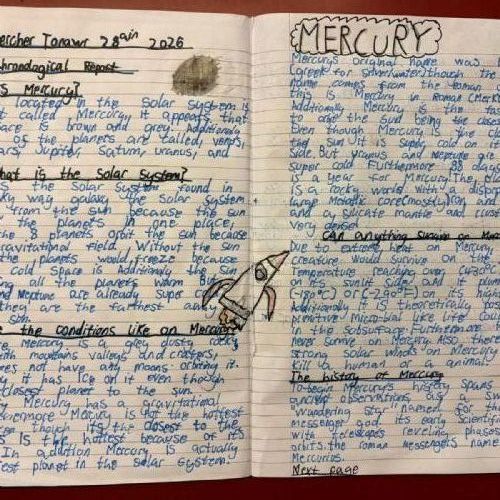 2026
Chronological Report
Mercury?
located in the solar system is
called Mercury, it appears that
is brown and grey. Additionally
of the planets are called, venus,
Jupiter, Saturn, uranus, and
What is the solar system?
is the solar system found in
way galaxy the solar system
from the sun because the sun
the planets in one place
the 8 planets orbit the sun because
gravitational field. Without the sun
the planets would freeze because
cold space is Additionally the sun
all the planets warm But
and Neptune are already super
they are the farthest away
the conditions like on Mercury?
Mercury is a grey dusty rocky
with mountains valleys and craters,
not have any moons orbiting it.
it has ice on it even though
closest planet to the sun
Mercury has a gravitational
Mercury is not the hottest
though its the closest to the
is the hottest because of its
In addition Mercury is actually
planet in the solar system.
MERCURY
Mercurys original name was
for silver water though the
name comes from the roman
this is Mercury in Roman
Additionally Mercury is the
to orbit the sun being the
Even though Mercury is the
the sun it is super cold on it
side. But uranus and Neptune are
super cold Furthermore 88 days
is a year For Mercury The
is a rocky world with a
large Metallic core (mostly) iron and
and a silicate mantle and
very dense
Can anything survive on
Due to extreme heat on Mercury
creature would survive on the
temperature reaching over
on its sunlit side and it
(-180°C) or (-290°F) on its
Additionally its theoretically
primitive Micro-bial like life could
in the subsurface. Furthermore
never survive on Mercury Also there
strong solar winds on Mercury
kill a human or a animal.
The history of Mercury
Mercury's history spans
ancient observations as a
"wandering star" named for
messenger god its early scientific
with telescopes phases
orbits. the roman messengers name
Mercurius
Next page